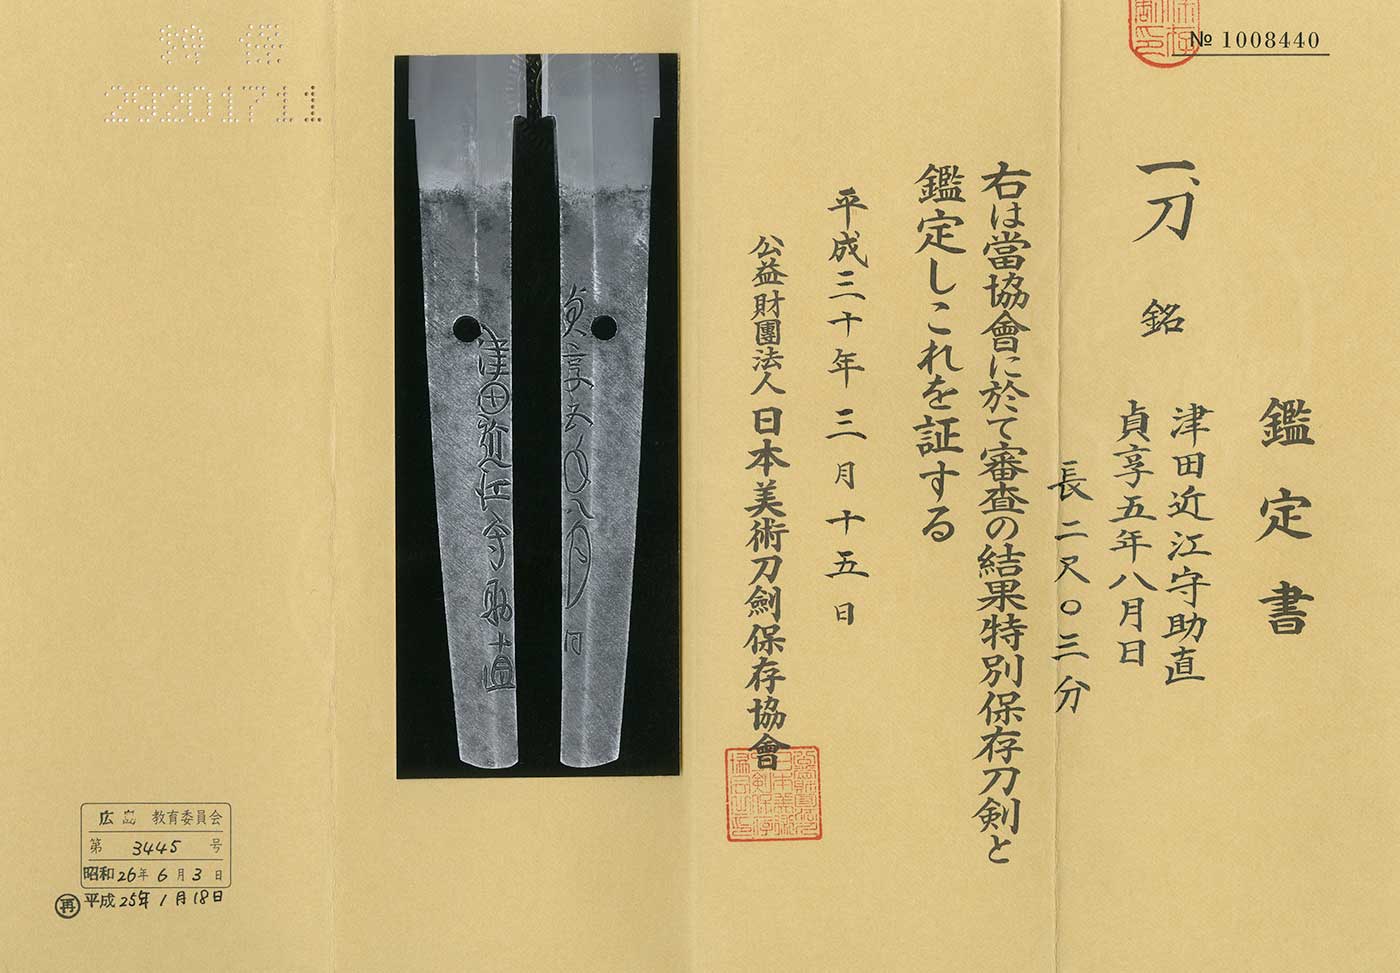 № 1008440
鑑定書
一、刀 銘
津田近江守助直
貞享五年八月日
長二尺〇三分
右は當協會に於て審査の結果特別保存刀剣と
鑑定しこれを証する
平成三十年三月十五日
公益財團法人日本美術刀劍保存協會
貞享五年八月日
津田近江守助直
29201711
広島 教育委員会
第 3445 号
昭和26年6月3日
再 平成25年1月18日